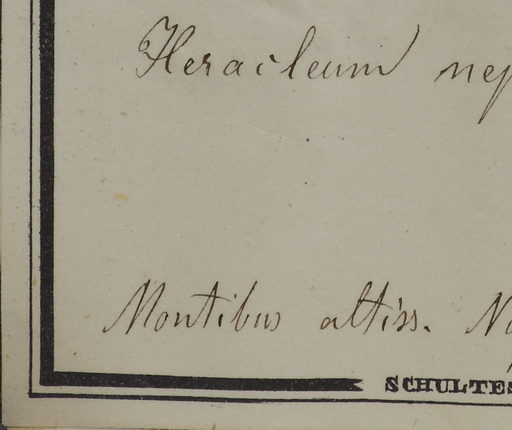 Heracleum nep
Montibus altiss. No
SCHULTES